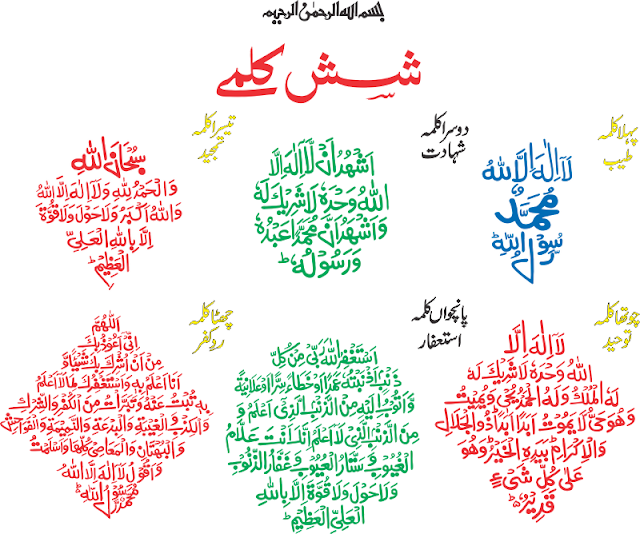 بسم الله الرحمن الرحيم
شش کلمے
پہلا کلمہ
طیب
لَا اِلٰهَ اِلَّا اللهُ
مُحَمَّدٌ
رَّسُوْلُ اللهِ
دوسرا کلمہ
شہادت
اَشْهَدُ اَنْ لَّا اِلٰهَ اِلَّا
اللهُ وَحْدَهٗ لَا شَرِيْكَ لَهٗ
وَاَشْهَدُ اَنَّ مُحَمَّدًا عَبْدُهٗ
وَرَسُوْلُهٗ
تیسرا کلمہ
تمجید
سُبْحَانَ اللهِ
وَالْحَمْدُ لِلّٰهِ وَلَا اِلٰهَ اِلَّا اللهُ
وَاللهُ اَكْبَرُ وَلَا حَوْلَ وَلَا قُوَّةَ
اِلَّا بِاللهِ الْعَلِيِّ
الْعَظِيْمِ
چوتھا کلمہ
توحید
لَا اِلٰهَ اِلَّا
اللهُ وَحْدَهٗ لَا شَرِيْكَ لَهٗ
لَهُ الْمُلْكُ وَلَهُ الْحَمْدُ يُحْيٖ وَيُمِيْتُ
وَهُوَ حَيٌّ لَّا يَمُوْتُ اَبَدًا اَبَدًا ذُو الْجَلَالِ
وَالْاِكْرَامِ بِيَدِهِ الْخَيْرُ وَهُوَ
عَلٰى كُلِّ شَىْءٍ
قَدِيْرٌ
پانچواں کلمہ
استغفار
اَسْتَغْفِرُ اللهَ رَبِّيْ مِنْ كُلِّ
ذَنْبٍ اَذْنَبْتُهٗ عَمَدًا اَوْ خَطَاءً سِرًّا اَوْ عَلَانِيَةً
وَّاَتُوْبُ اِلَيْهِ مِنَ الذَّنْبِ الَّذِيْ اَعْلَمُ وَ
مِنَ الذَّنْبِ الَّذِيْ لَا اَعْلَمُ اِنَّكَ اَنْتَ عَلَّامُ
الْغُيُوْبِ وَسَتَّارُ الْعُيُوْبِ وَغَفَّارُ الذُّنُوْبِ
وَلَا حَوْلَ وَلَا قُوَّةَ اِلَّا بِاللهِ
الْعَلِيِّ الْعَظِيْمِ
چھٹا کلمہ
رد کفر
اَللّٰهُمَّ
اِنِّيْ اَعُوْذُ بِكَ
مِنْ اَنْ اُشْرِكَ بِكَ شَيْئًا وَّ
اَنَا اَعْلَمُ بِهٖ وَاَسْتَغْفِرُكَ لِمَا لَا اَعْلَمُ
بِهٖ تُبْتُ عَنْهُ وَتَبَرَّأْتُ مِنَ الْكُفْرِ وَالشِّرْكِ
وَالْكِذْبِ وَالْغِيْبَةِ وَالْبِدْعَةِ وَالنَّمِيْمَةِ وَالْفَوَاحِشِ
وَالْبُهْتَانِ وَالْمَعَاصِيْ كُلِّهَا وَاَسْلَمْتُ
وَاَقُوْلُ لَا اِلٰهَ اِلَّا اللهُ
مُحَمَّدٌ رَّسُوْلُ اللهِ